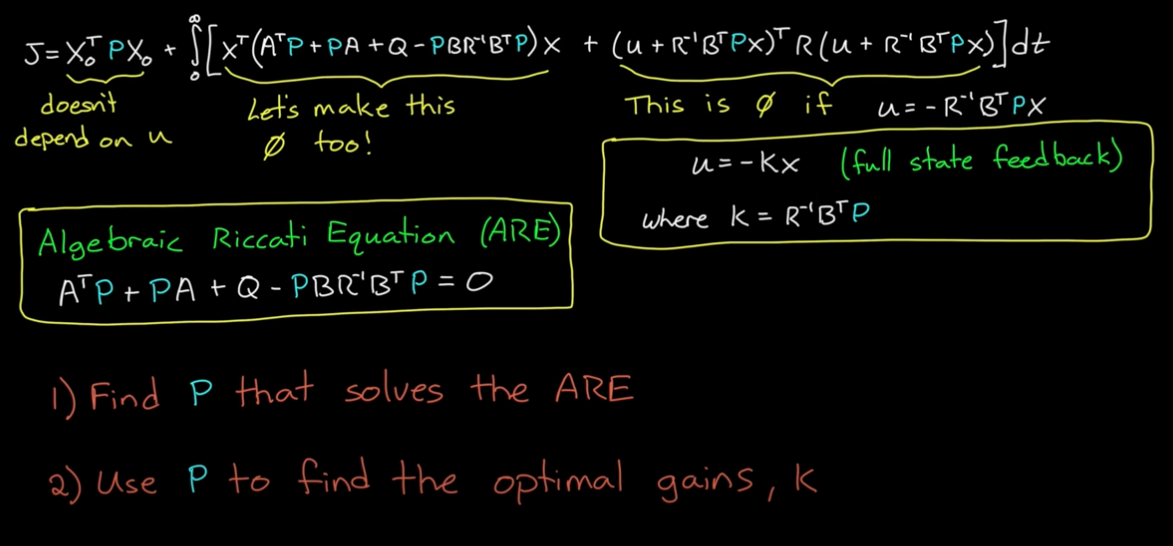 J = X₀ᵀ P X₀ + ∫₀^∞ [ xᵀ(AᵀP + PA + Q - PBR⁻¹BᵀP) x + (u + R⁻¹BᵀPx)ᵀ R (u + R⁻¹BᵀPx) ] dt
doesn't
depend on u
Let's make this
∅ too!
This is ∅ if u = - R⁻¹BᵀPx
u = - Kx (full state feedback)
where K = R⁻¹BᵀP
Algebraic Riccati Equation (ARE)
AᵀP + PA + Q - PBR⁻¹BᵀP = 0
1) Find P that solves the ARE
2) Use P to find the optimal gains, K